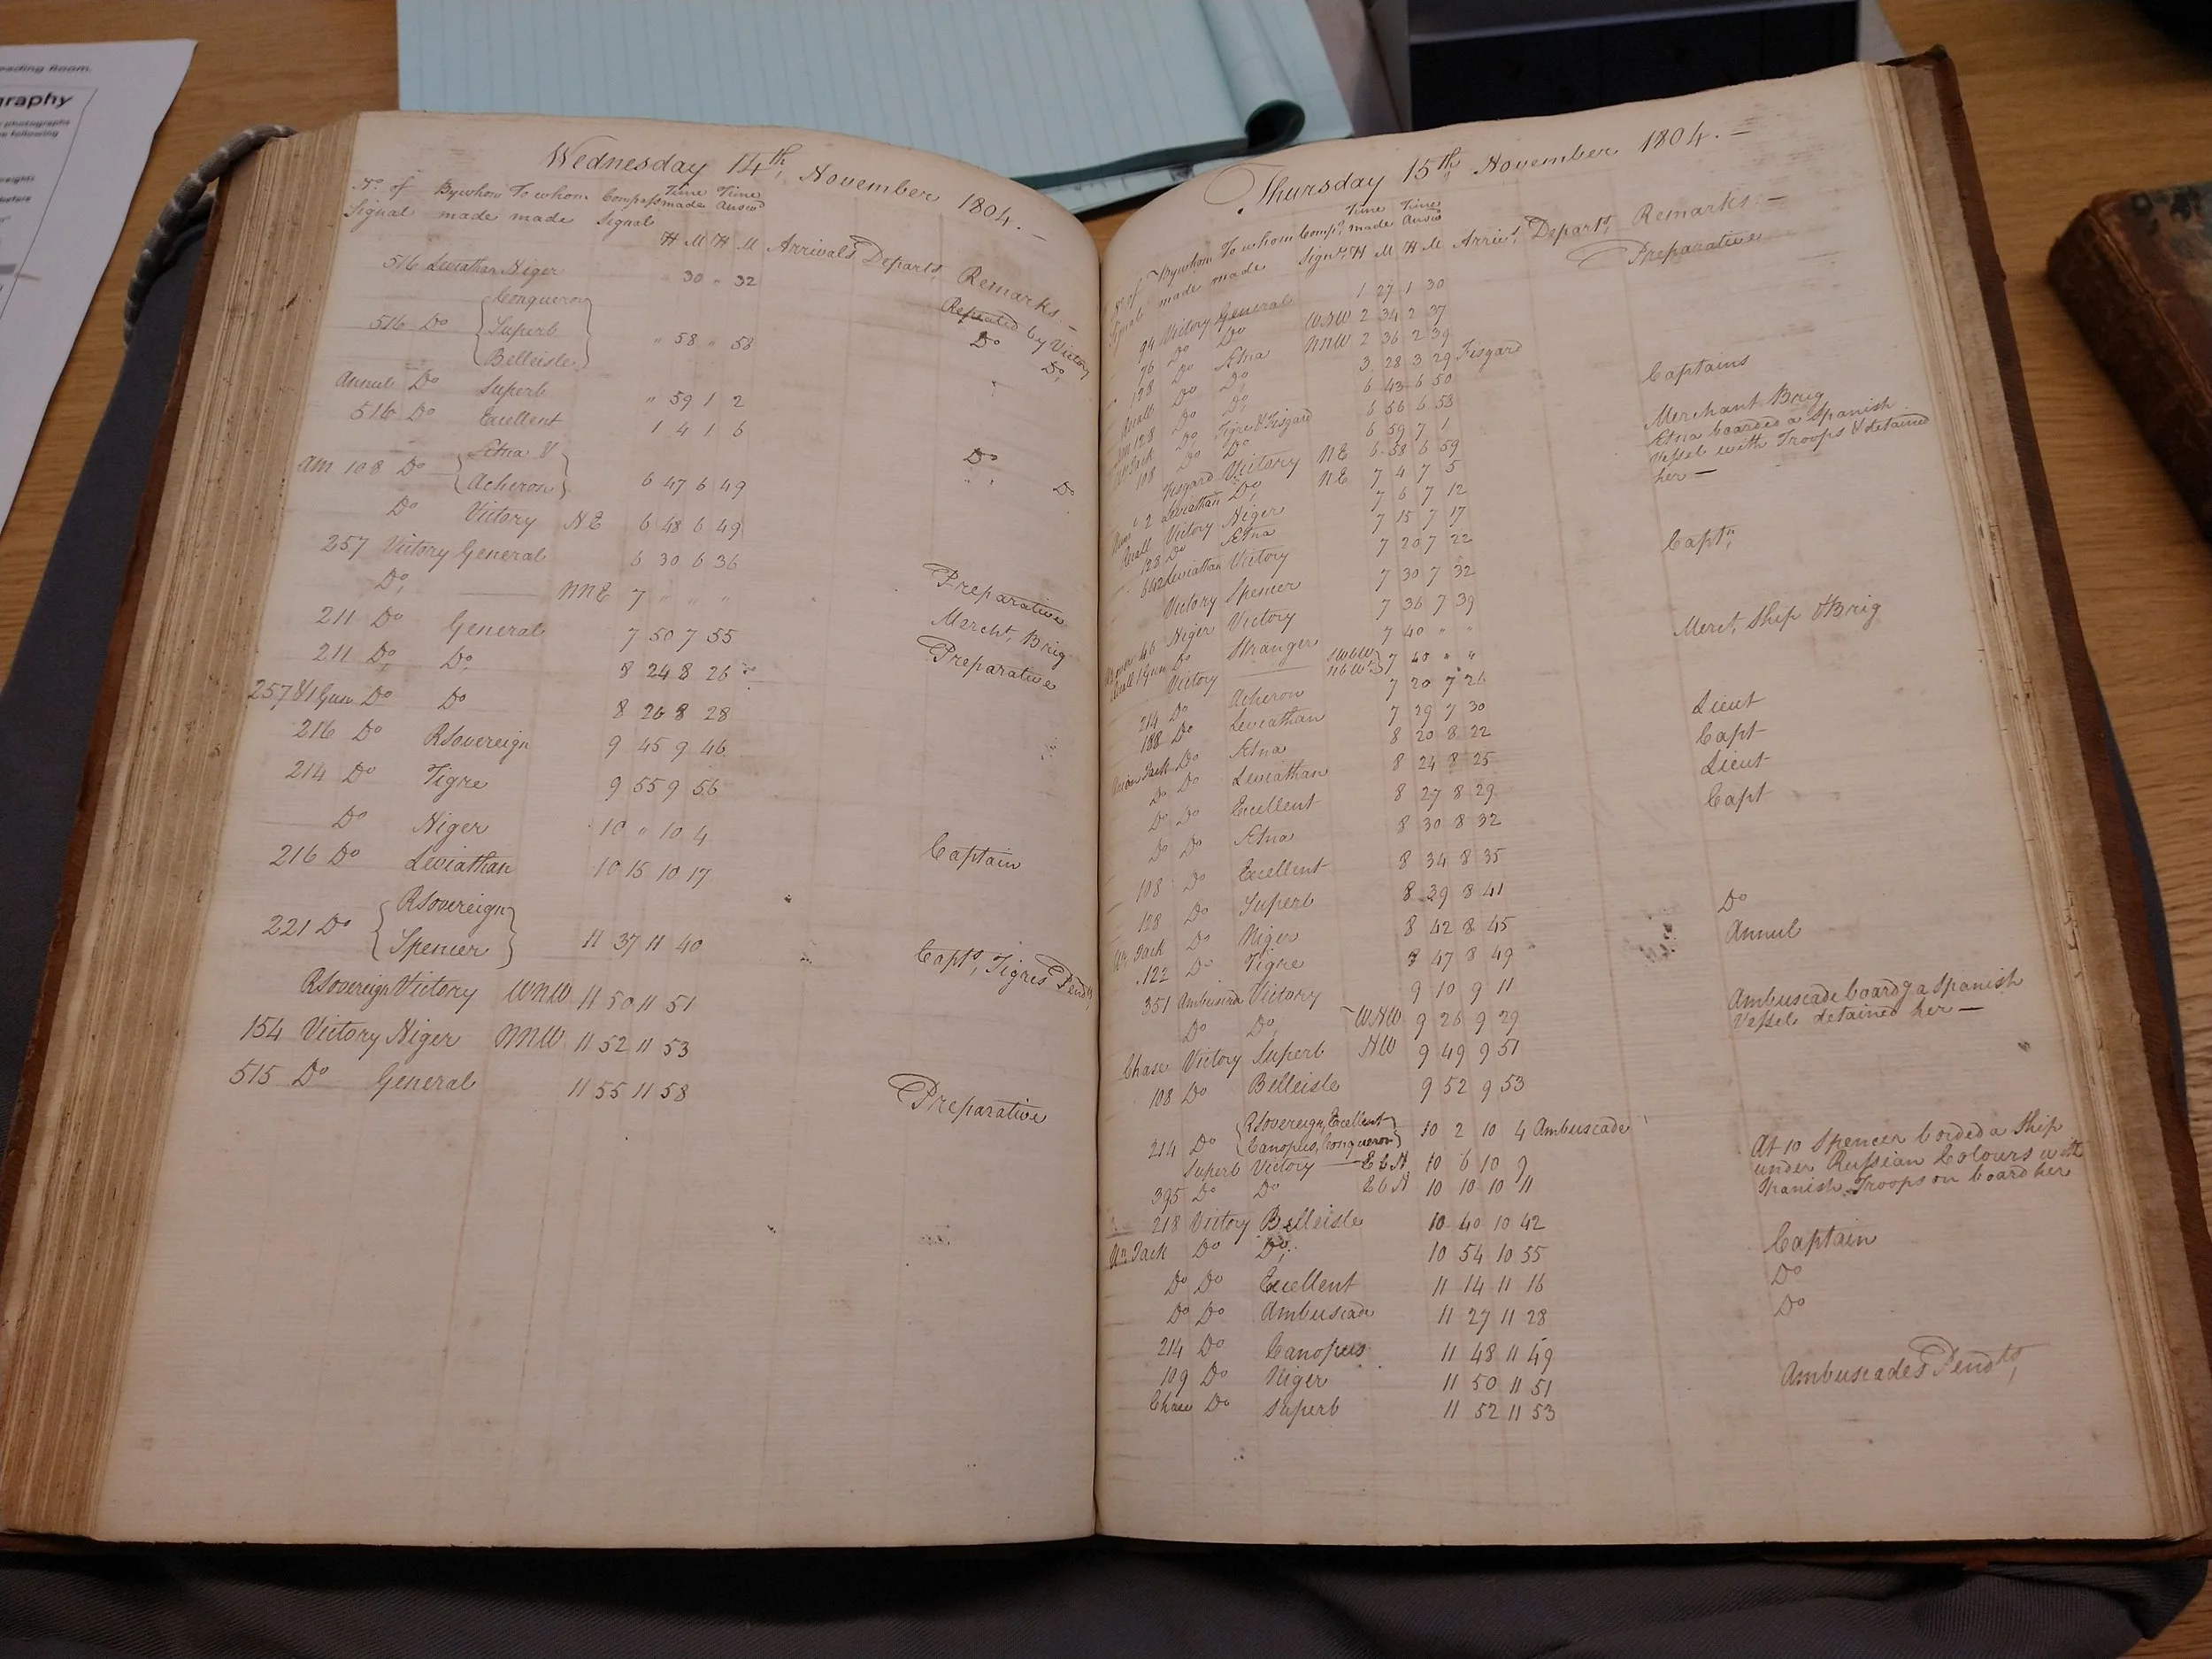 eading Room.
graphy
photographs
e following
Wednesday 14th, November 1804. —
No. of By whom To whom Compass Time Time
Signal made made Signal made Answd
H M H M Arrivals Departs, Remarks. —
516 Leviathan Niger " 30 " 32 Repeated by Victory
{Conqueror
516 Do Superb " 58 " 58 Do Do,
Belleisle}
Annul Do Superb " 59 1 2
516 Do Excellent 1 4 1 6
Am 108 Do {Ætna & Acheron} 6 47 6 49 Do Do
Do Victory NE 6 48 6 49
257 Victory General 6 30 6 36 Preparative
Do, NNE 7 " " " Mercht, Brig
211 Do General 7 50 7 55 Preparative
211 Do, Do, 8 24 8 26
257 & 1 Gun Do Do 8 26 8 28
216 Do RSovereign 9 45 9 46
214 Do Tigre 9 55 9 56
Do Niger 10 " 10 4 Captain
216 Do Leviathan 10 15 10 17
221 Do {RSovereign Spencer} 11 37 11 40 Capts, Tigres Pendts
RSovereign Victory WNW 11 50 11 51
154 Victory Niger NNW 11 52 11 53
515 Do General 11 55 11 58 Preparative
Thursday 15th November 1804. —
No of By whom To whom Comps, Time made Time Answd
Signal made made Signl H M H M Arrivs, Departs, Remarks. —
94 Victory General 1 27 1 30 Preparative
76 Do Do WNW 2 34 2 37
128 Do Ætna NNW 2 36 2 39
Do Do, 3 28 3 29 Fisgard
Do Do, 6 43 6 50 Captains
Do Tigre & Fisgard 6 56 6 58
108 Do Do 6 59 7 1 Merchant Brig
Fisgard Victory NE 6 58 6 59 Ætna boarded a Spanish
Leviathan Do, NE 7 4 7 5 Vessel with Troops & detained
Victory Niger 7 6 7 12 her —
128 Do Ætna 7 15 7 17
642 Leviathan Victory 7 20 7 22 Captn,
Victory Spencer 7 30 7 32
46 Niger Victory 7 36 7 39 Merct, Ship & Brig
Do Stranger 7 40 " "
Victory 7 40 " "
214 Do Acheron 7 20 7 26
188 Do Leviathan 7 29 7 30 Lieut
Union Jack Do Ætna 8 20 8 22 Capt
Do Do Leviathan 8 24 8 25 Lieut
Do Do Excellent 8 27 8 29 Capt
Do Do Ætna 8 30 8 32
108 Do Excellent 8 34 8 35
128 Do Superb 8 39 8 41 Do
Un Jack Do Niger 8 42 8 45 Annul
122 Do Tigre 8 47 8 49
351 Ambuscade Victory 9 10 9 11 Ambuscade boardg a Spanish
Do Do, WNW 9 26 9 29 Vessel detained her —
Chase Victory Superb NW 9 49 9 51
108 Do Belleisle 9 52 9 53
214 Do {RSovereign, Excellent Canopus, Conqueror} 10 2 10 4 Ambuscade At 10 Spencer borded a Ship
Superb Victory EbN 10 6 10 9 under Russian Colours with
395 Do Do EbN 10 10 10 11 Spanish Troops on board her
218 Victory Belleisle 10 40 10 42
Un Jack Do Do, 10 54 10 55 Captain
Do Do Excellent 11 14 11 16 Do
Do Do Ambuscade 11 27 11 28 Do
214 Do Canopus 11 48 11 49
109 Do Niger 11 50 11 51 Ambuscades Pendts,
Chase Do Superb 11 52 11 53